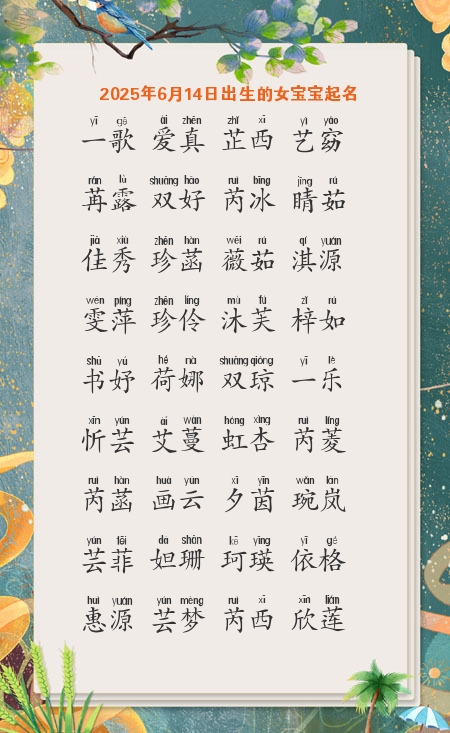 2025年6月14日出生的女宝宝起名
yī gē ài zhēn zhǐ xī yì yǎo
一歌 爱真 芷西 艺窈
rǎn lù shuāng hǎo ruì bīng jīng rú
苒露 双好 芮冰 睛茹
jiā xiù zhēn hàn wēi rú qí yuán
佳秀 珍菡 薇茹 淇源
wén píng zhēn líng mù fú zǐ rú
雯萍 珍伶 沐芙 梓如
shū yú hé nà shuāng qióng yī lè
书妤 荷娜 双琼 一乐
xīn yún ài wàn hóng xìng ruì líng
忻芸 艾蔓 虹杏 芮菱
ruì hàn huà yún xī yīn wǎn lán
芮菡 画云 夕茵 琬岚
yún fēi dá shān kē yīng yī gé
芸菲 妲珊 珂瑛 依格
huì yuán yún mèng ruì xī xīn lián
惠源 芸梦 芮西 欣莲